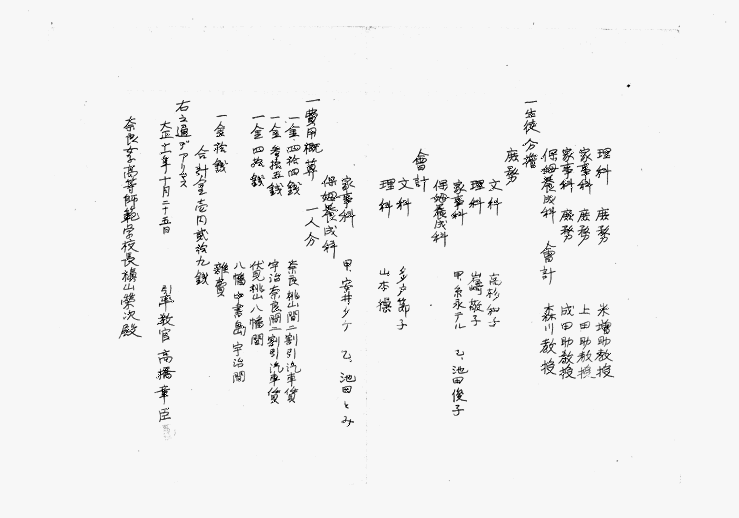 理科 庶務 米増助教授
家事科 庶務 上田助教授
家事科 庶務 成田助教授
保姆養成科 会計 森川教授
一 生徒分擔
庶務
文科 高杉知子
理科 岩崎敏子
家事科
保姆養成科 甲、糸永テル 乙、池田俊子
会計
文科 節子
理科 山本操
家事科
保姆養成科 甲、安井タケ 乙、池田とみ
一 費用概算 一人分
一金四拾四銭 奈良桃山間二割引汽車賃
一金参拾五銭 宇治奈良間二割引汽車賃
一金四拾銭 伏見桃山八幡間
八幡中書島宇治間
一金拾銭 雑費
合計金壱円弐拾九銭
右之通デアリマス
大正十一年十月二十五日 引率教官 高橋華臣
奈良女子高等師範学校長槇山榮次殿